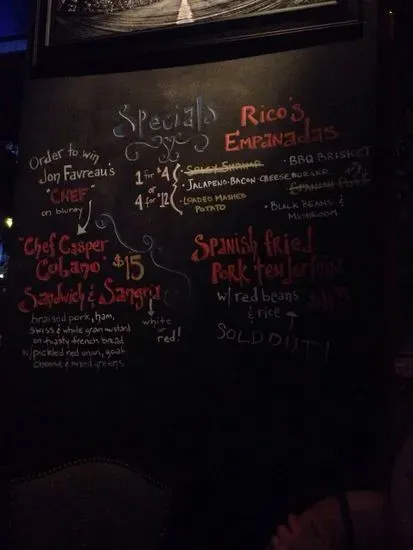 Specials
Rico's
Empanadas
1 for $4
or
4 for $12
• Spicy Shrimp
• Jalapeno-Bacon-Cheeseburger
• Loaded Mashed
Potato
• BBQ Brisket
• Spanish
• Black Beans &
Mushroom
Order to win
Jon Favreau's
"CHEF"
on bluray
"Chef Casper
Cubano" $15
Sandwich & Sangria
white
or
red!
braised pork, ham,
swiss & whole grain mustard
on toasty french bread
w/ pickled red onion, goat
cheese & mixed greens
Spanish fried
Pork tenderloin
w/ red beans
& rice
SOLD OUT!